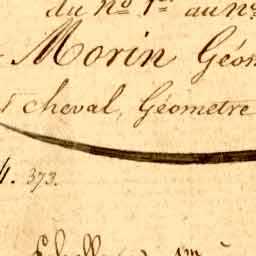 du nº 1er au nº
Morin Géom
cheval, Géometre
4. 373.
Echelle de 1m